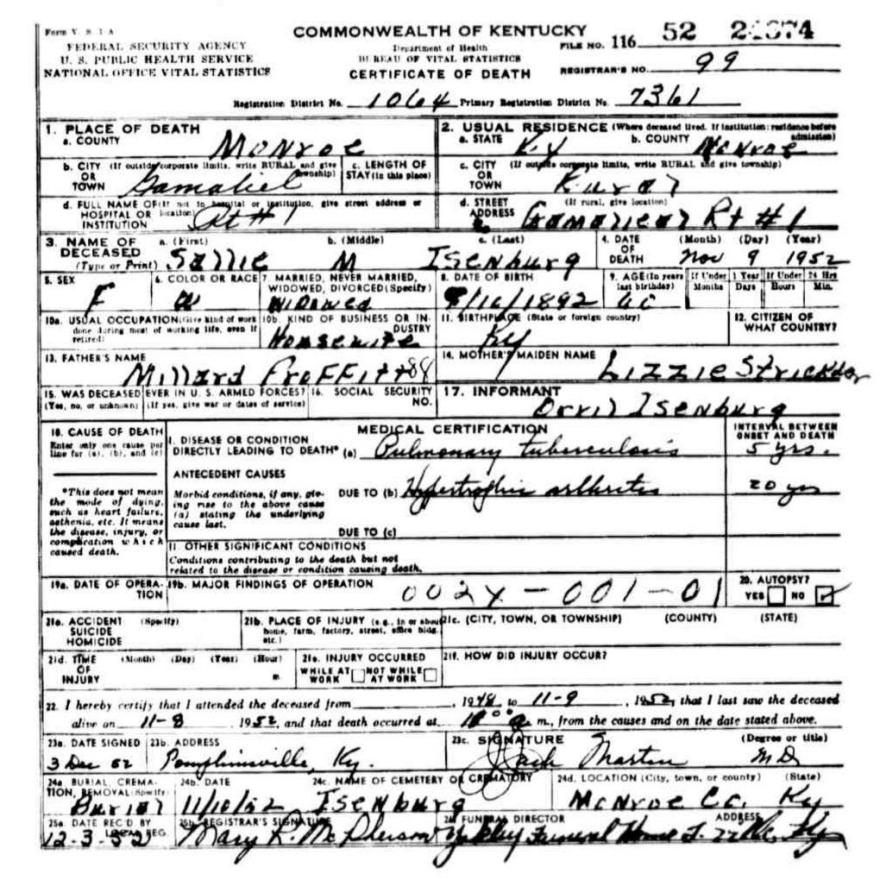 Form V. S. 1 A
FEDERAL SECURITY AGENCY
U. S. PUBLIC HEALTH SERVICE
NATIONAL OFFICE VITAL STATISTICS
COMMONWEALTH OF KENTUCKY
Department of Health
BUREAU OF VITAL STATISTICS
CERTIFICATE OF DEATH
FILE NO. 116 52
REGISTRAR'S NO. 99
Registration District No. 1064 Primary Registration District No. 7361
1. PLACE OF DEATH
a. COUNTY Monroe
2. USUAL RESIDENCE (Where deceased lived. If institution: residence before admission)
a. STATE Ky b. COUNTY Monroe
b. CITY (If outside corporate limits, write RURAL and give township) OR TOWN Gamaliel
c. LENGTH OF STAY (in this place)
c. CITY (If outside corporate limits, write RURAL and give township) OR TOWN Rural
d. FULL NAME OF (If not in hospital or institution, give street address or location) HOSPITAL OR INSTITUTION Rt # 1
d. STREET ADDRESS (If rural, give location) Rt # 1
3. NAME OF DECEASED (Type or Print)
a. (First) Sallie b. (Middle) M c. (Last) Isenburg
4. DATE OF DEATH (Month) (Day) (Year) Nov 9 1952
5. SEX F
6. COLOR OR RACE W
7. MARRIED, NEVER MARRIED, WIDOWED, DIVORCED (Specify) Widowed
8. DATE OF BIRTH /16/1892
9. AGE (In years last birthday) If Under 1 Year Months Days If Under 24 Hrs Hours Min.
10a. USUAL OCCUPATION (Give kind of work done during most of working life, even if retired)
10b. KIND OF BUSINESS OR INDUSTRY Housewife
11. BIRTHPLACE (State or foreign country) Ky
12. CITIZEN OF WHAT COUNTRY?
13. FATHER'S NAME Millard Proffitt 88
14. MOTHER'S MAIDEN NAME Lizzie
15. WAS DECEASED EVER IN U. S. ARMED FORCES? (Yes, no, or unknown) (If yes, give war or dates of service)
16. SOCIAL SECURITY NO.
17. INFORMANT Orvil Isenburg
18. CAUSE OF DEATH
Enter only one cause per line for (a), (b), and (c)
MEDICAL CERTIFICATION
INTERVAL BETWEEN ONSET AND DEATH
I. DISEASE OR CONDITION DIRECTLY LEADING TO DEATH* (a) Pulmonary tuberculosis 5 yrs.
*This does not mean the mode of dying, such as heart failure, asthenia, etc. It means the disease, injury, or complication which caused death.
ANTECEDENT CAUSES
Morbid conditions, if any, giving rise to the above cause (a) stating the underlying cause last.
DUE TO (b) Hypertrophic arthritis 20 yrs
DUE TO (c)
II OTHER SIGNIFICANT CONDITIONS
Conditions contributing to the death but not related to the disease or condition causing death.
19a. DATE OF OPERATION
19b. MAJOR FINDINGS OF OPERATION
002X-001-01
20. AUTOPSY?
YES NO
21a. ACCIDENT SUICIDE HOMICIDE (Specify)
21b. PLACE OF INJURY (e.g., in or about home, farm, factory, street, office bldg. etc.)
21c. (CITY, TOWN, OR TOWNSHIP) (COUNTY) (STATE)
21d. TIME OF INJURY (Month) (Day) (Year) (Hour) m.
21e. INJURY OCCURRED
WHILE AT WORK NOT WHILE AT WORK
21f. HOW DID INJURY OCCUR?
22. I hereby certify that I attended the deceased from , 1948, to 11-9, 1952, that I last saw the deceased
alive on 11-8 1952, and that death occurred at m., from the causes and on the date stated above.
23a. DATE SIGNED 3 Dec 52
23b. ADDRESS Ky.
23c. SIGNATURE Jack Martin (Degree or title) M D
24a. BURIAL, CREMATION, REMOVAL (Specify) Burial
24b. DATE 11/10/52
24c. NAME OF CEMETERY OR CREMATORY Isenburg
24d. LOCATION (City, town, or county) (State) Monroe Co. Ky
25a. DATE REC'D BY LOCAL REG. 12-3-52
25b. REGISTRAR'S SIGNATURE Mary L. McPherson
26. FUNERAL DIRECTOR ADDRESS Yokley Funeral Home Ky